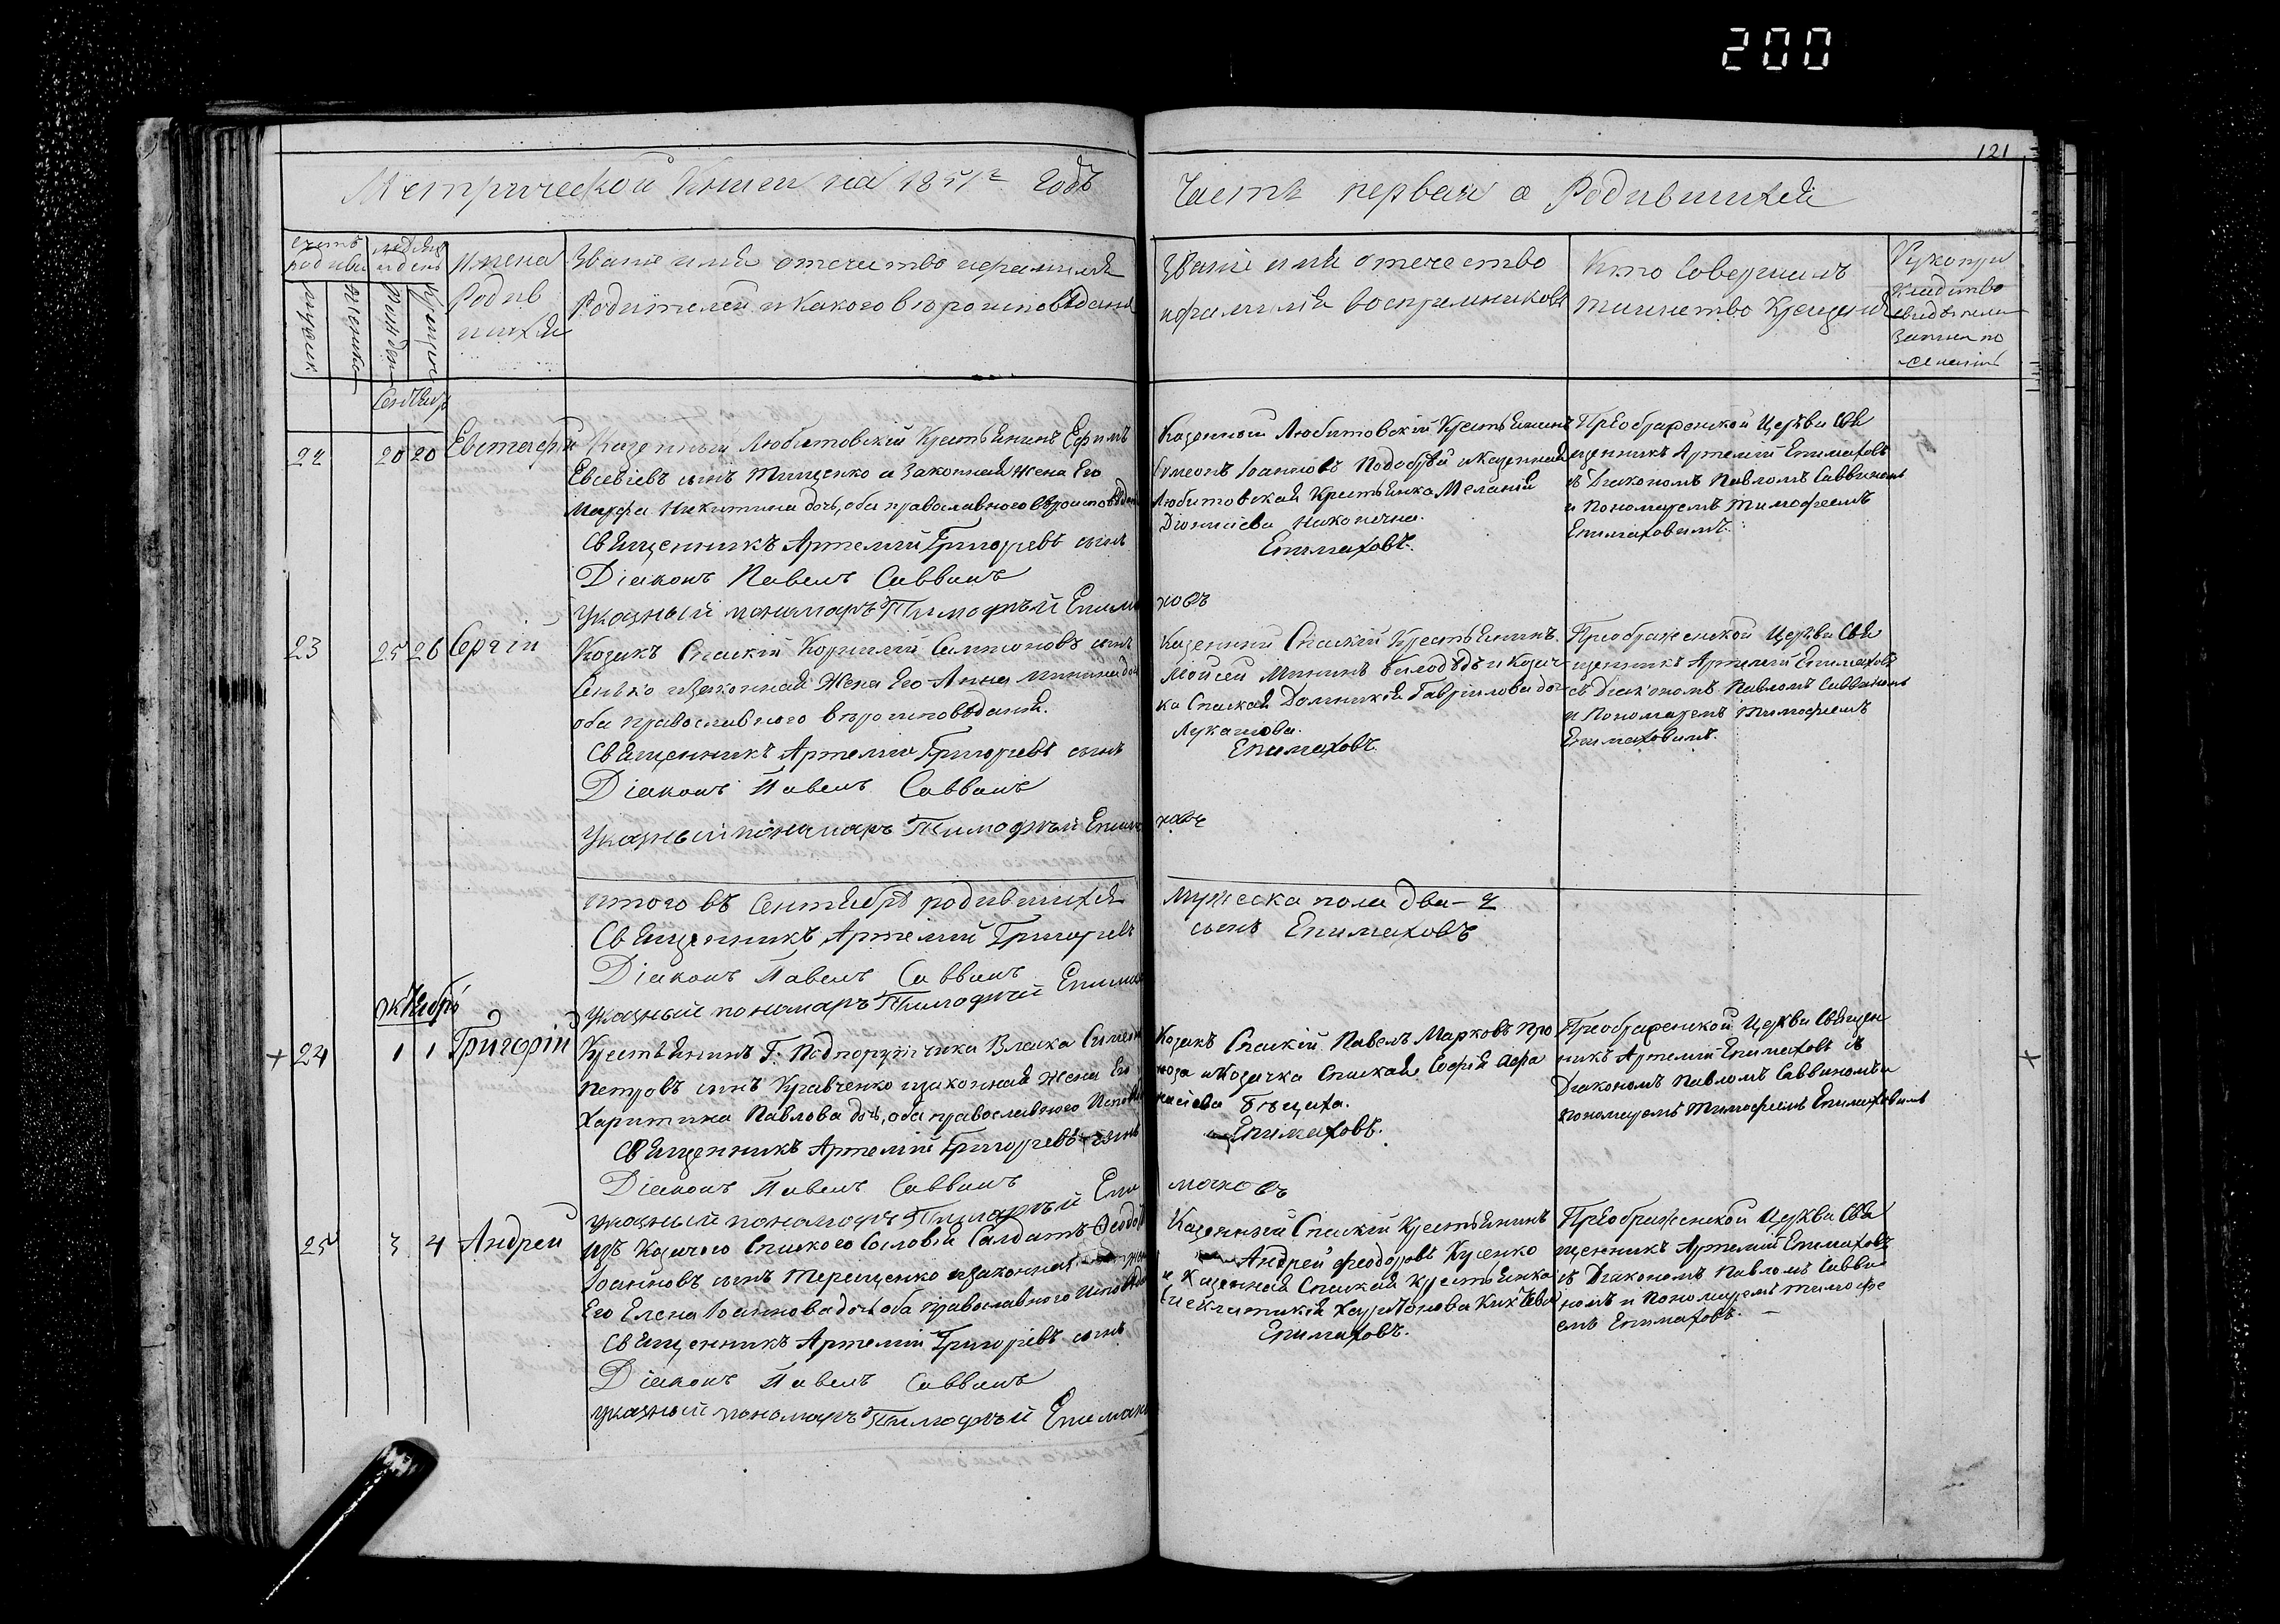 200
121
Метрической Книги на 1851й Годъ
Часть первая о Родившихся
счетъ родивш
мужеск
женска
месяцъ и день
рожден
крещенiя
Имена
Родив
шихся
Званіе имя отечество и фамилія
Родителей и какого вероисповѣданія
Званіе имя отечество
и фамилія воспріемниковъ
Кто Совершалъ
таинство Крещенія
Рукопри
кладство
свидѣтелей
записи по
желанію
Сентябрь
22
20 20
Евстафій
Казенный Любитовскій Крестьянинъ Ефимъ
Евсевіевъ сынъ Тищенко и Законная жена Его
Марфа Никитина дочь, оба православного вѣроисповѣданія
Священникъ Артемій Григорьевъ сынъ
Діаконъ Павелъ Саввинъ
Указный понамаръ Тимофѣй Епима
Казенный Любитовскій Крестьянинъ
Симеонъ Іоанновъ Подобѣдъ и Казенная
Любитовская Крестьянка Меланія
Діонисіева Наконечна.
Епимаховъ.
ховъ
Преображенской Церкви Свя
щенникъ Артемій Епимаховъ
съ Діакономъ Павломъ Саввинымъ
и Пономаремъ Тимофеемъ
Епимаховымъ.
23
25 26
Сергій
Козакъ Спаскій Корнилій Сампсоновъ сынъ
Сенько и Законная Жена Его Анна Минина доч
оба православного вероисповѣданія.
Священникъ Артемій Григорьевъ сынъ
Діаконъ Павелъ Саввинъ
Указный понамаръ Тимофѣй Епима
Казенный Спаскій Крестьянинъ
Моисей Мининъ Билодѣдъ и Козач
ка Спаская Домникія Гавріилова доч
Лукашова.
Епимаховъ.
ховъ
Преображенской Церкви Свя
щенникъ Артемій Епимаховъ
съ Діакономъ Павломъ Саввинымъ
и Пономаремъ Тимофеемъ
Епимаховымъ.
итого въ Сентябрѣ родившихся
мужеска пола два - 2
Священникъ Артемій Григорьевъ
сынъ Епимаховъ
Діаконъ Павелъ Саввинъ
указный понамаръ Тимофѣй Епима
Октябрь
+ 24
1 1
Григорій
Крестьянинъ Г. Подпоручика Власка Симеонъ
Петровъ сынъ Кравченко и законная жена Его
Харитина Павлова дочь, оба православного Исповѣд
Священникъ Артемій Григорьевъ сынъ
Діаконъ Павелъ Саввинъ
указный понамаръ Тимофѣй Епи
Козакъ Спаскій Павелъ Марковъ Про
коза и Козачка Спаская Софія Афа
насіева Бецила.
Епимаховъ.
маховъ
Преображенской Церкви Священ
никъ Артемій Епимаховъ съ
Діакономъ Павломъ Саввиномъ и
пономаремъ Тимофеемъ Епимаховымъ
+
25
3 4
Андрей
изъ Козачого Спаского Сословія Салдатъ Феодоръ
Іоанновъ сынъ Терещенко и законная жен
Его Елена Іоаннова дочь оба православного Исповѣд
Священникъ Артемій Григорьевъ сынъ
Діаконъ Павелъ Саввинъ
указный понамаръ Тимофѣй Епимахо
Казенный Спаскій Крестьянинъ
Андрей Феодоровъ Кусенко
и Казенная Спаская Крестьянка
Синклитикія Харитонова
Епимаховъ.
Преображенской Церкви Свя
щенникъ Артемій Епимаховъ
съ Діакономъ Павломъ Савви
номъ и Пономаремъ Тимофе
емъ Епимаховъ.